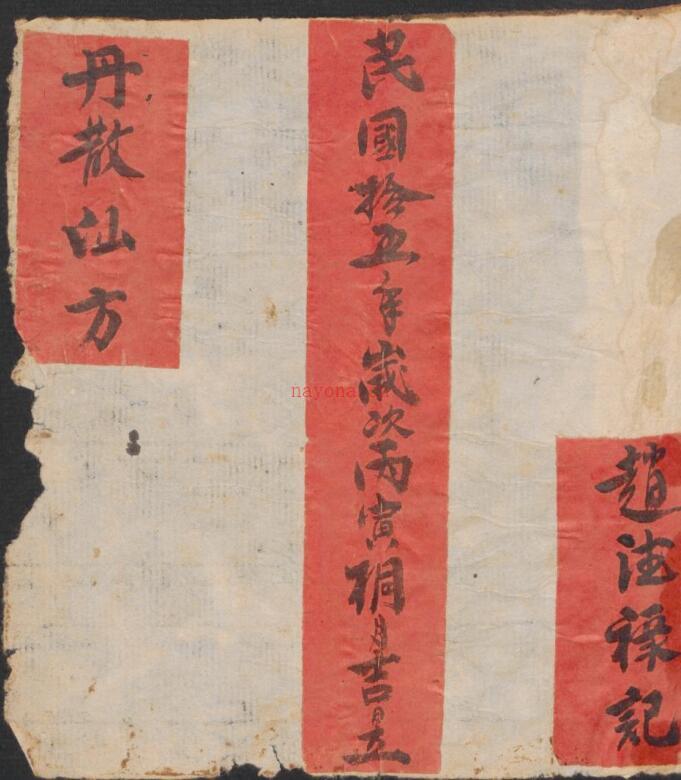 趙法祿記
民國拾五年歲次丙寅桐月吉日立
丹散仙方
nayona